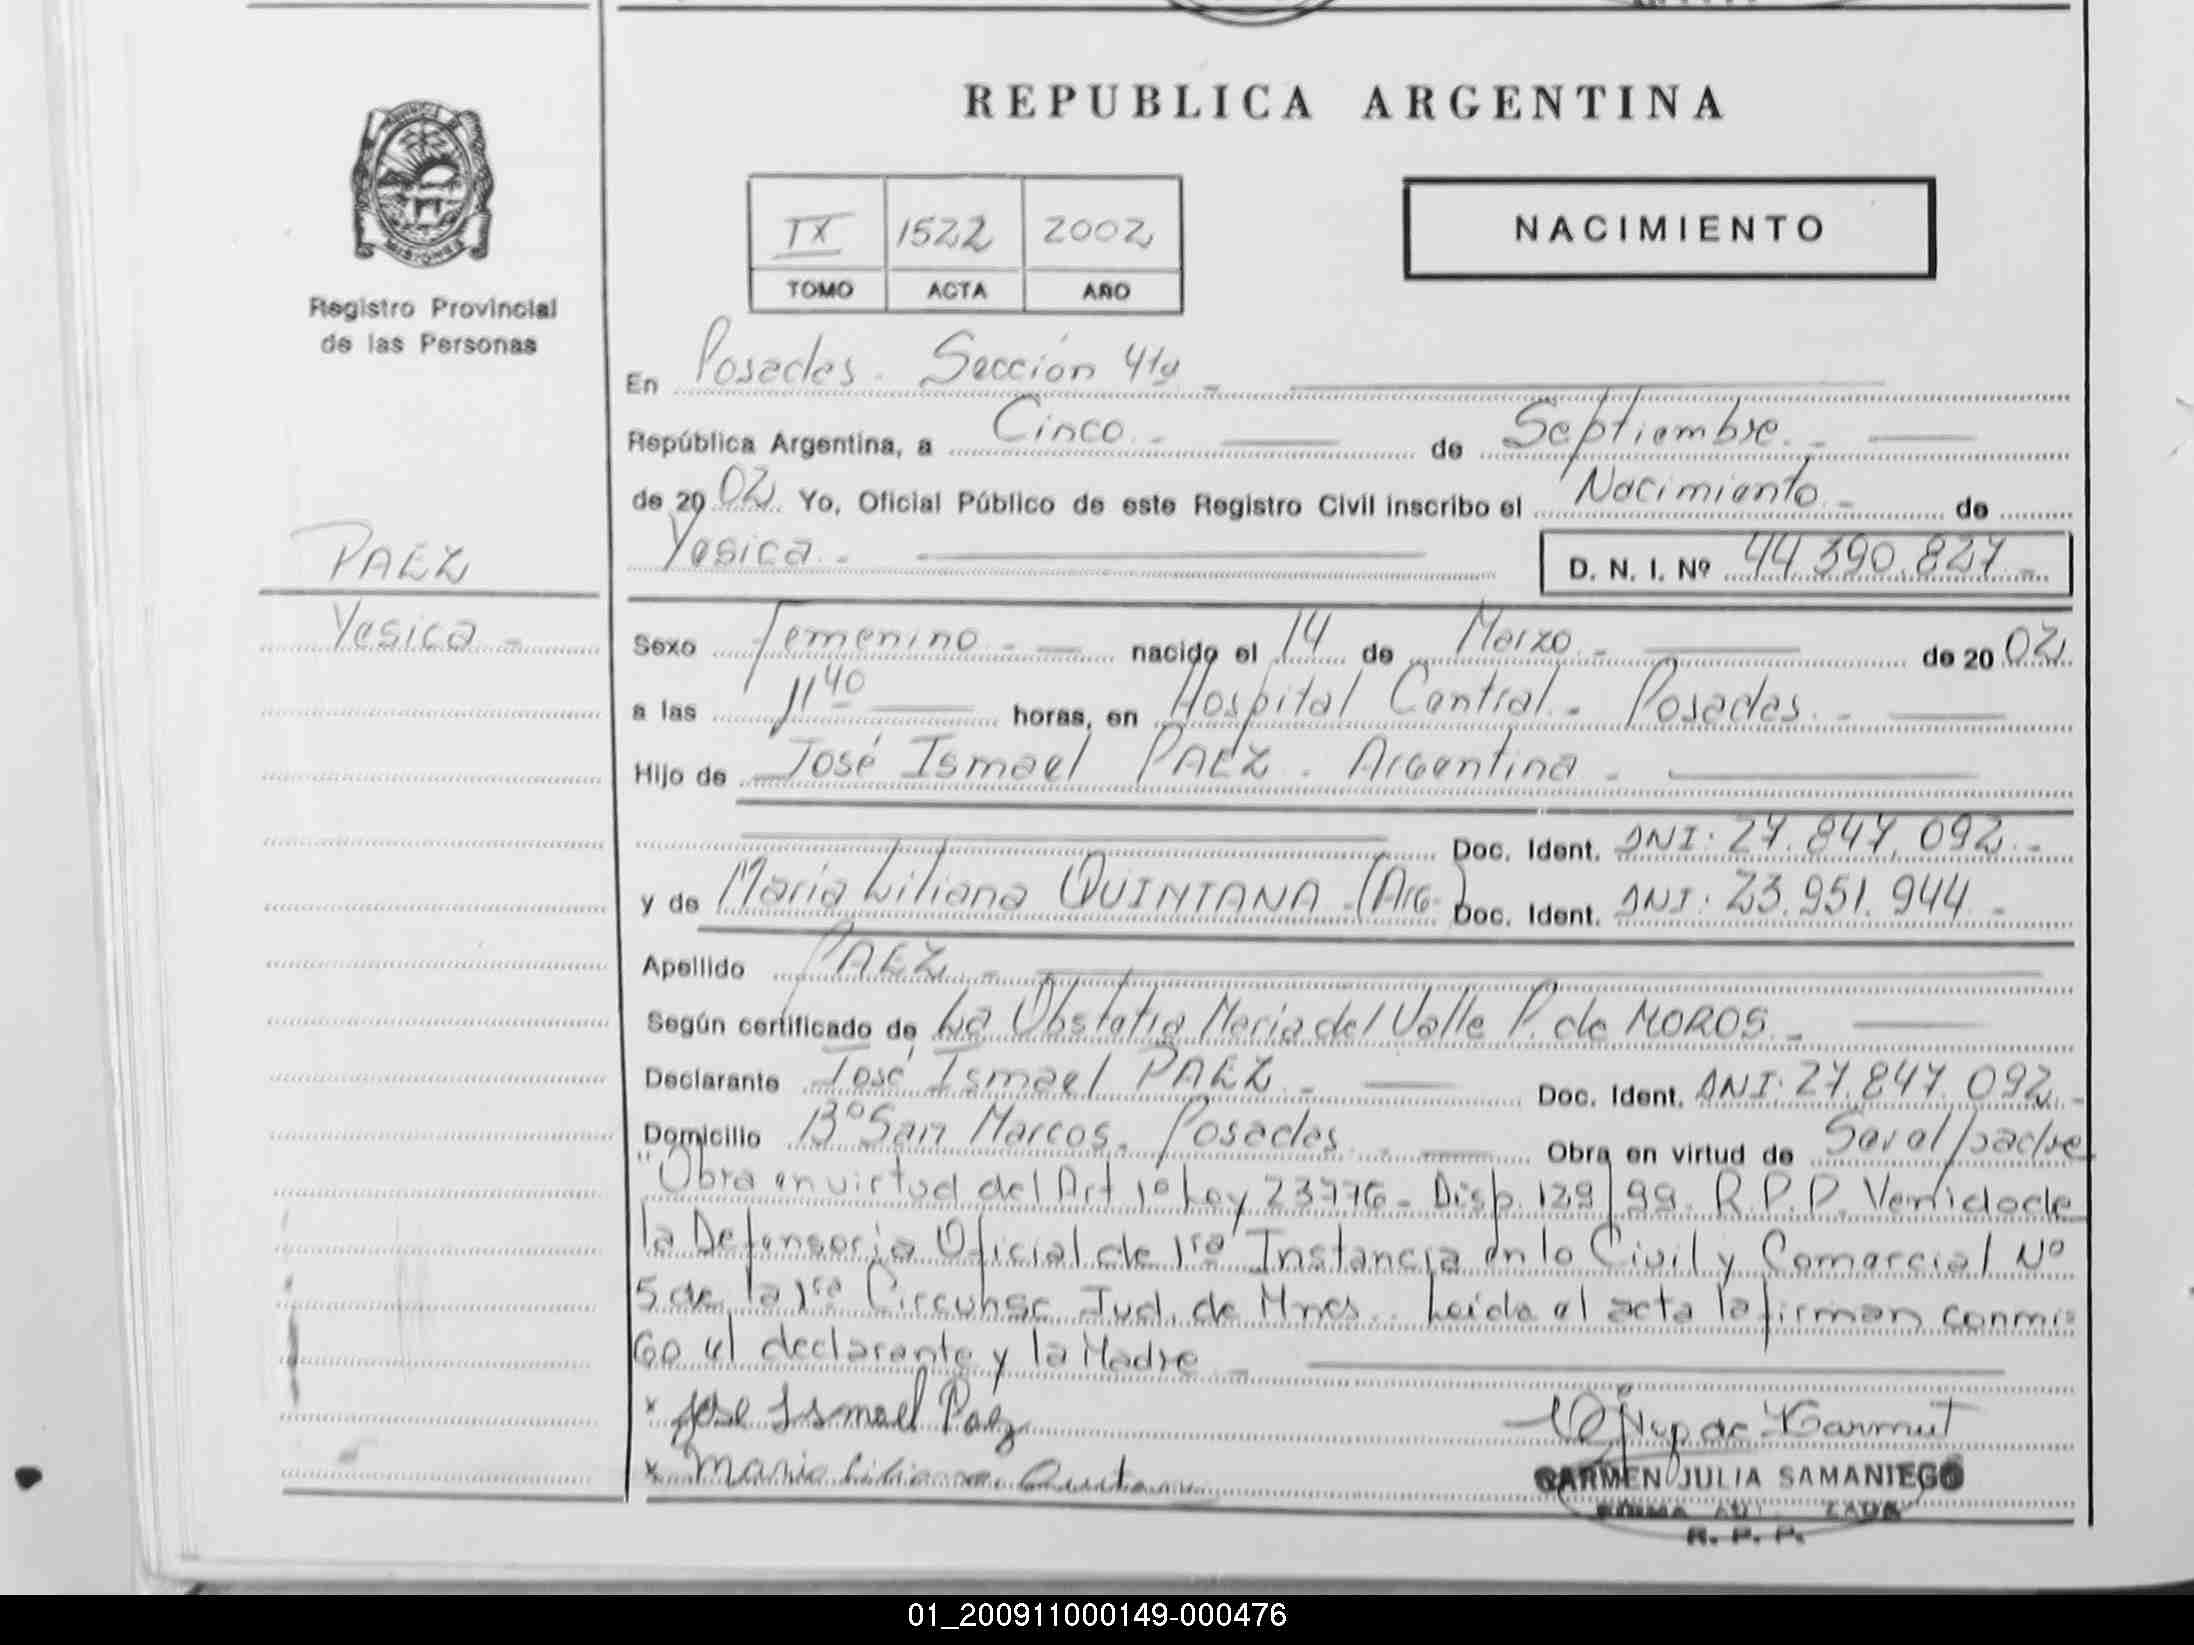 REPUBLICA ARGENTINA
IX 1522 2002
TOMO ACTA AÑO
NACIMIENTO
PROVINCIA DE
MISIONES
Registro Provincial
de las Personas
PAEZ
Yesica -
En Posadas. Sección 4ta -
República Argentina, a Cinco. - de Septiembre. -
de 20 02 Yo, Oficial Público de este Registro Civil inscribo el Nacimiento - de
Yesica. - D. N. I. Nº 44.390.827 -
Sexo Femenino - nacido el 14 de Marzo - de 20 02
a las 11 40 horas, en Hospital Central - Posadas. -
Hijo de José Ismael PAEZ. Argentina -
Doc. Ident. DNI: 27.847.092 -
y de María Liliana QUINTANA - (Arg.) Doc. Ident. DNI: 23.951.944 -
Apellido PAEZ -
Según certificado de La Obstetra María del Valle P. de MOROS -
Declarante José Ismael PAEZ - Doc. Ident. DNI: 27.847.092 -
Domicilio Bº San Marcos. Posadas Obra en virtud de Ser el padre
"Obra en virtud del Art 1º Ley 23776 - Disp. 129/99. R.P.P. Venido de
la Defensoria Oficial de 1ra Instancia en lo Civil y Comercial Nº
5 de la 1ra Circunsc. Jud. de Mnes. Leida el acta la firman conmi
go el declarante y la Madre -
x Jose Ismael Paez
x Maria Liliana Quintana
CARMEN JULIA SAMANIEGO
R. P. P.
01_200911000149-000476